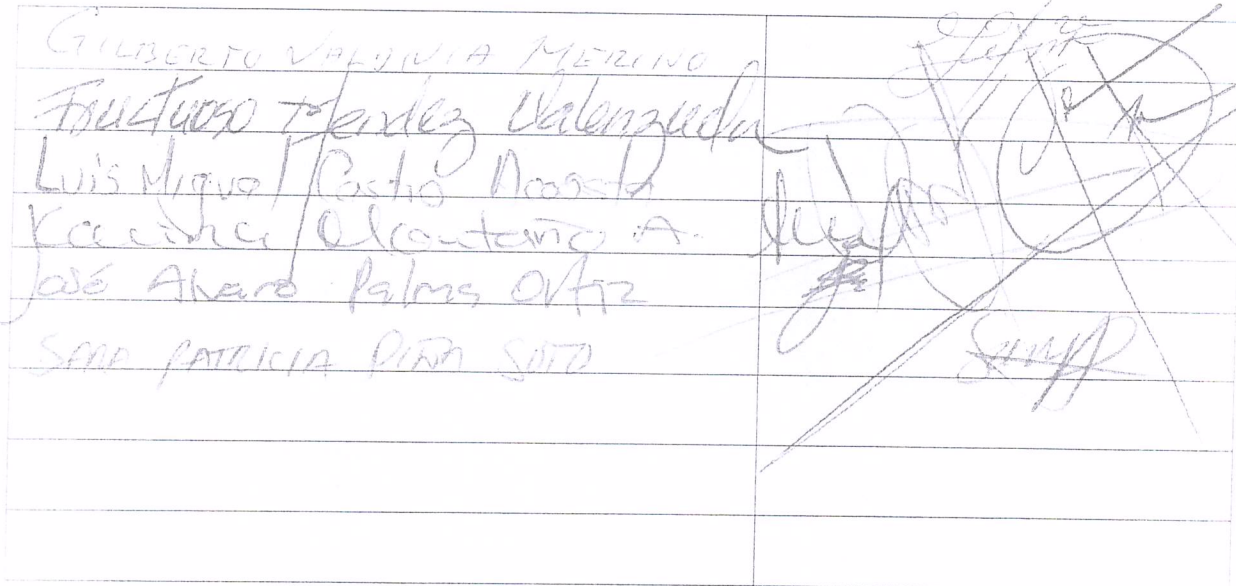 GILBERTO VALDIVIA MERINO
Fructuoso Méndez Valenzuela
Luis Miguel Castro Acosta
Karina A.
José Alvaro Palma Ortiz
SARA PATRICIA PIÑA SOTO